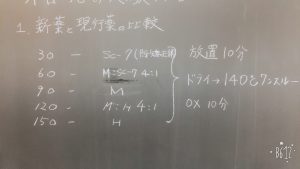 1. 新薬と現行薬の比較
30 - Sc-7
60 - M:Sc-7 4:1
90 - M
120 - M:H 4:1
150 - H
放置10分
ドライ→140℃ワンスルー
OX 10分